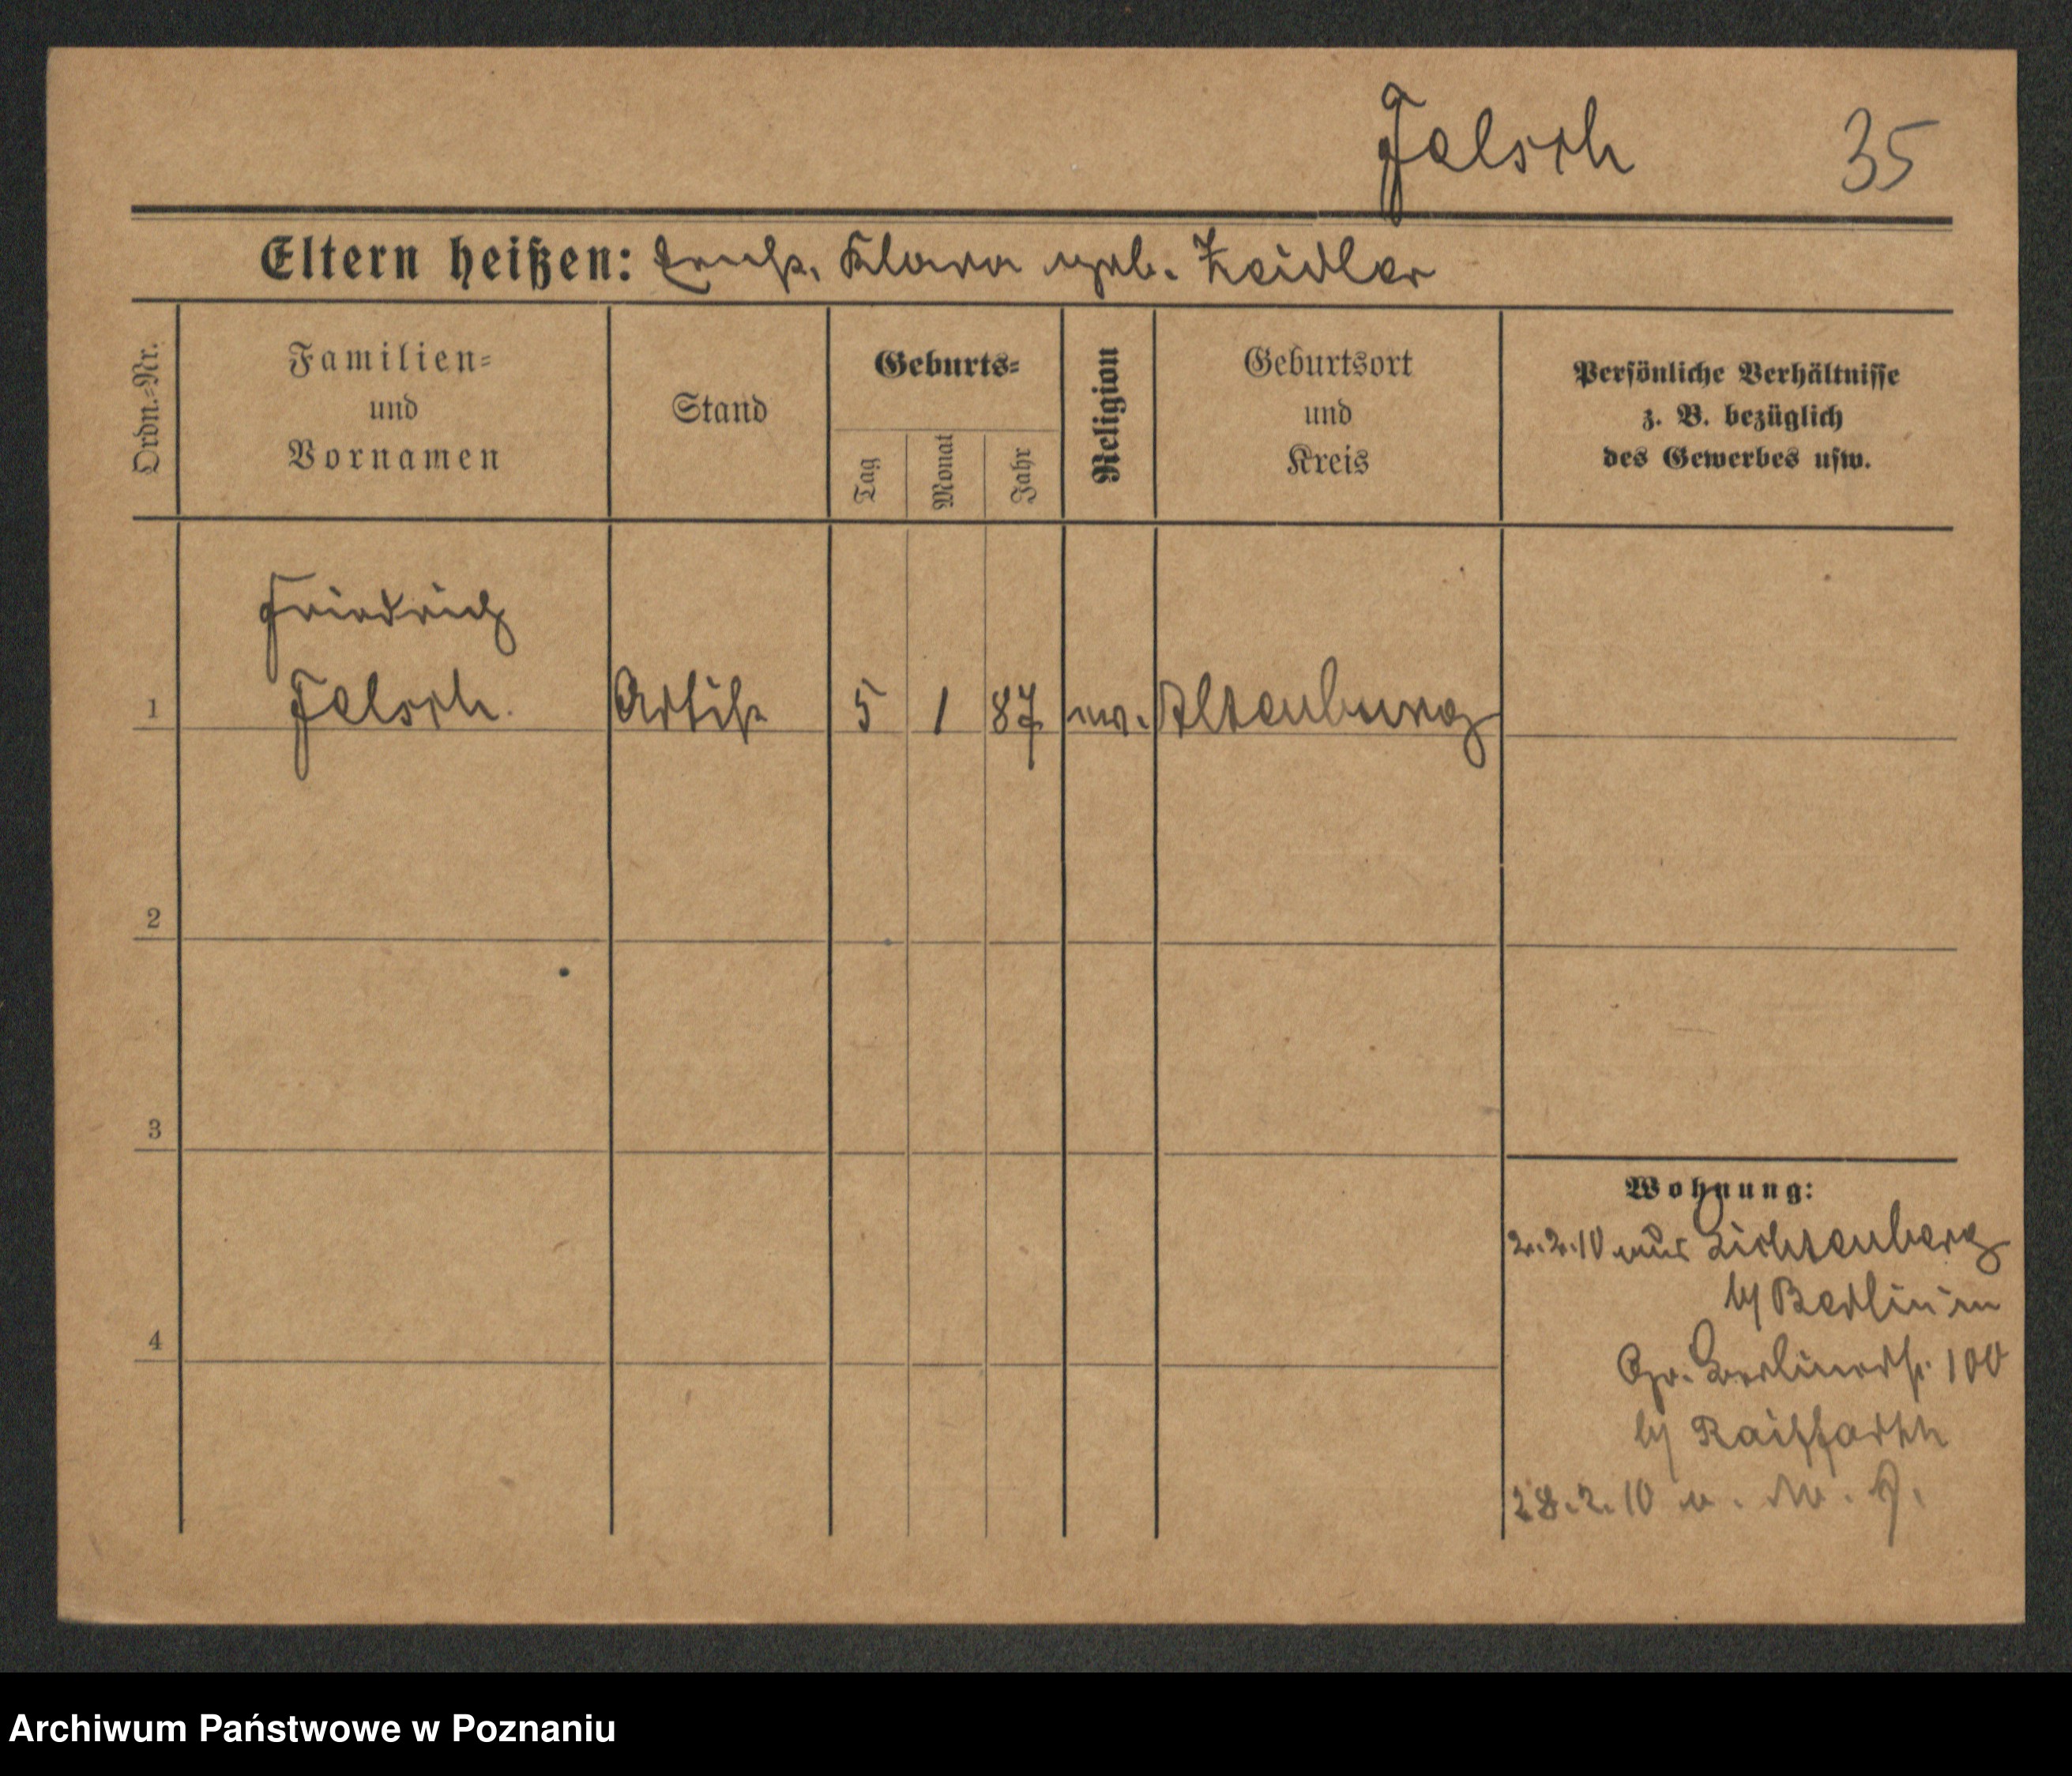 Felsch 35
Eltern heißen: Ernst, Klara geb. Zeidler
Ordn.-Nr.
Familien-
und
Vornamen
Stand
Geburts-
Tag
Monat
Jahr
Religion
Geburtsort
und
Kreis
Persönliche Verhältnisse
z. B. bezüglich
des Gewerbes usw.
Friedrich
1 Felsch. Artist 5 1 87 ev. Altenburg
2
3
4
Wohnung:
2.2.10 aus Lichtenberg
b/ Berlin in
Gr. Berlinerstr. 100
b/ Raiffarth
28.2.10 a. W. J.
Archiwum Państwowe w Poznaniu